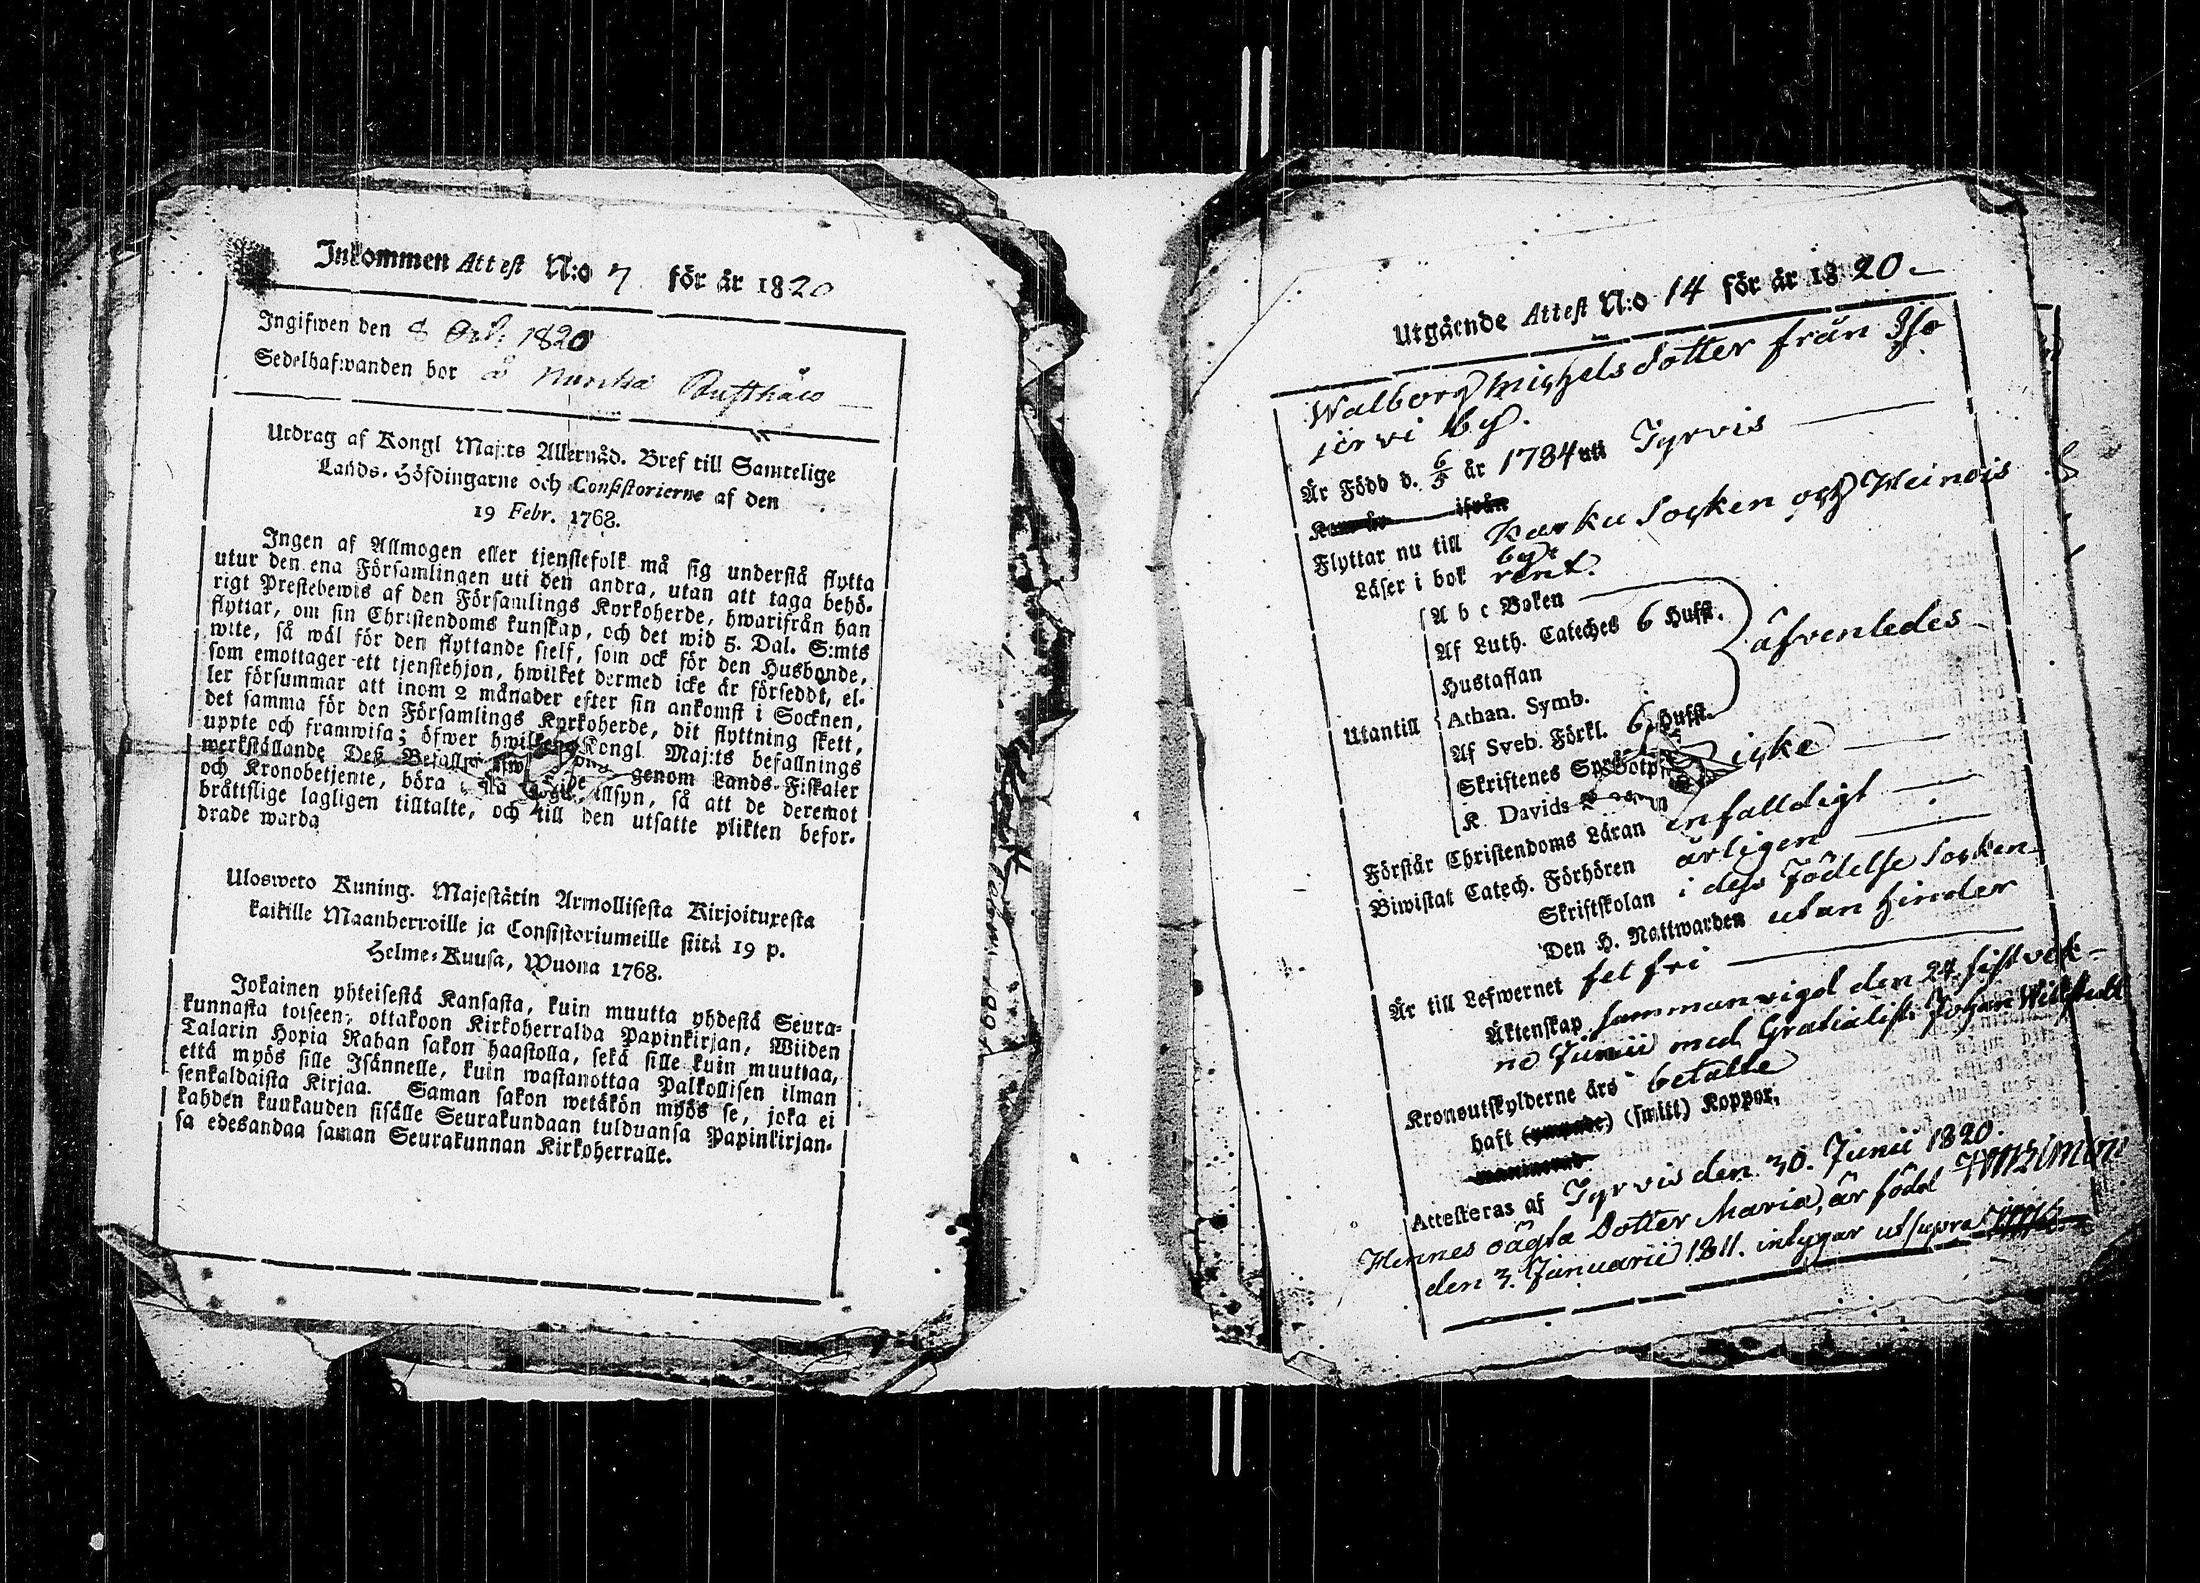 Inkommen Attest N:o 7 för år 1820
Ingifwen den 8 Oct: 1820
Sedelhafwanden bor å
Utdrag af Kongl Maj:ts Allernåd. Bref till Samtelige
Lands-Höfdingarne och Consistorierne af den
19 Febr. 1768.
Ingen af Allmogen eller tjenstefolk må sig understå flytta
utur den ena Församlingen uti den andra, utan att taga behö-
rigt Prestebewis af den Församlings Kyrkoherde, hwarifrån han
flyttar, om sin Christendoms kunskap, och det wid 5. Dal. S:mts
wite, så wäl för den flyttande sielf, som ock för den Husbonde,
som emottager ett tjenstehjon, hwilket dermed icke är förseddt, el-
ler försummar att inom 2 månader efter sin ankomst i Socknen,
det samma för den Församlings Kyrkoherde, dit flyttning skett,
uppte och framwisa; öfwer Kongl Maj:ts befallnings
werkställande Deß genom Lands-Fiskaler
och Kronobetjente, böra tillsyn, så att de deremot
bråttslige lagligen tilltalte, och till den utsatte plikten befor-
drade warda
Ulosweto Kuning. Majestätin Armollisesta Kirjoituxesta
kaikille Maanherroille ja Consistoriumeille siitä 19 p.
Helme-Kuusa, Wuona 1768.
Jokainen yhteisestä Kansasta, kuin muutta yhdestä Seura-
kunnasta toiseen, ottakoon Kirkoherralda Papinkirjan, Wiiden
Talarin Hopia Rahan sakon haastolla, sekä sille kuin muuttaa,
että myös sille Isännelle, kuin wastanottaa Palkollisen ilman
senkaldaista Kirjaa. Saman sakon wetäkön myös se, joka ei
kahden kuukauden sisälle Seurakundaan tulduansa Papinkirjan-
sa edesandaa saman Seurakunnan Kirkoherralle.
Utgående Attest N:o 14 för år 1820
Walborg Michelsdotter från Iso
jörvi by.
Är Född d. 6/5 år 1784 uti Tyrvis
Kom år ifrån
Flyttar nu till Karku Socken och Heinois
by.
Läser i bok rent.
A b c Boken
Af Luth. Cateches 6 Hufst.
Hustaflan
åfvenledes
Utantill
Athan. Symb.
Af Sveb. Förkl. 6 Hufst.
Skriftenes icke
K. Davids
Förstår Christendoms Läran enfalldigt
Biwistat Catech. Förhören årligen
Skriftskolan i dess Födelse Socken
Den H. Nattwarden utan hinder
Är till Lefwernet fel fri
Äktenskap sammanvigd den 24. sistvek-
ne Junii med Gratialist. Johan Willstedt
Kronoutskylderne års betalte
haft (ympade) (smitt) Koppor,
Attesteras af Tyrvis den 30. Junii 1820.
Hennes oägta Dotter Maria, är född
den 3. Januarii 1811. intygar ut supra